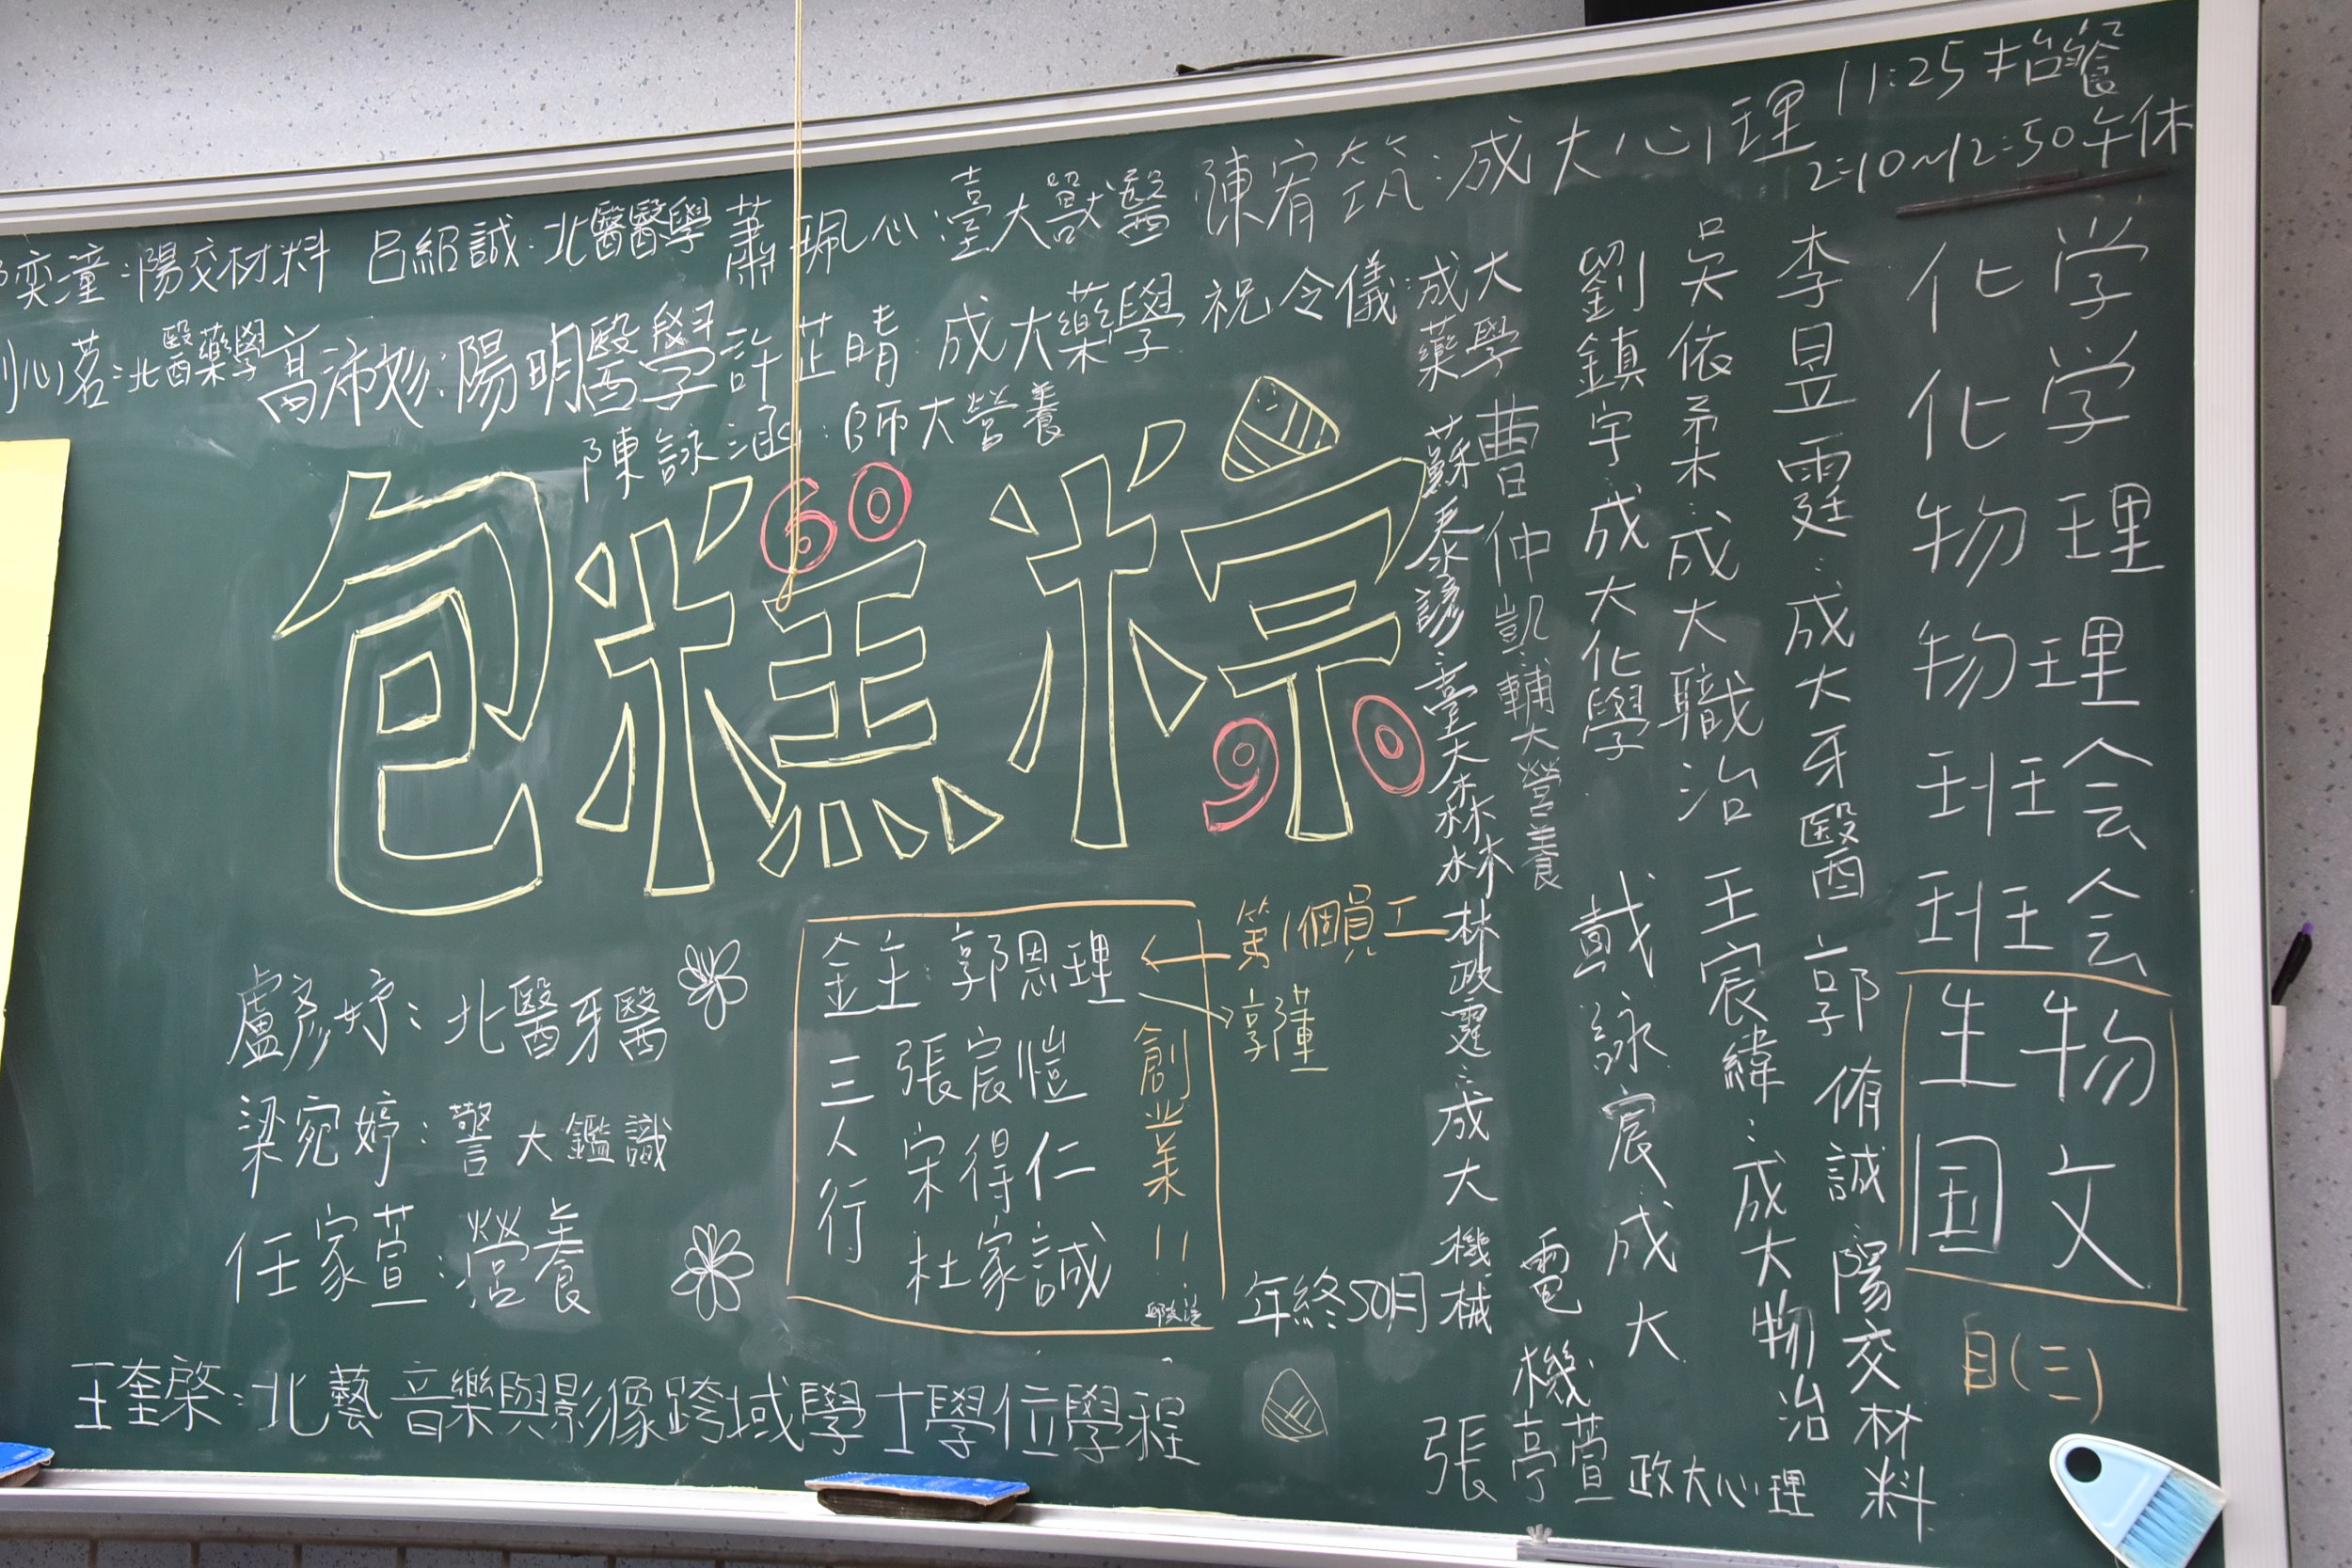 11:25抬餐
2:10~12:50午休
奕潼:陽交材料 呂紹誠:北醫醫學 蕭珮心:臺大獸醫 陳宥筑:成大心理
心茗:北醫藥學 高沛彣:陽明醫學 許芷晴 成大藥學 祝令儀:成大藥學
陳詠涵:師大營養
包糕粽
60
90
化学
化学
物理
物理
班会
班会
生物
国文
自(三)
李昱霆:成大牙醫
郭侑誠 陽交材料
吳依柔:成大職治
王宸緯:成大物治
劉鎮宇:成大化學
戴詠宸成大電機
曹仲凱:輔大營養
蘇泰諺:臺大森林
林政霆:成大機械
張亭萱 政大心理
盧彥妤:北醫牙醫
梁宛婷:警大鑑識
任家萱:營養
金主:郭恩理
三人行
張宸愷
宋得仁
杜家誠
創業!!
第1個員工
郭董
年終50月
王奎棨:北藝 音樂與影像跨域學士學位學程